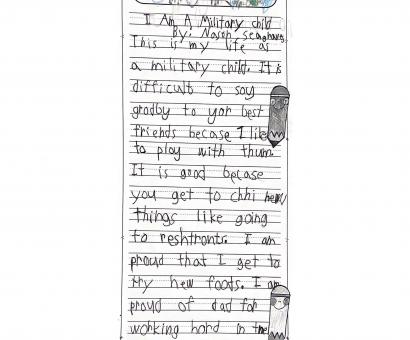 I Am A Military child
By: Nason
This is my life as
a military child. It is
difficult to say
goodby to yor best
friends becase I like
to play with thum.
It is good becase
you get to chhi new
things like going
to reshtronts. I am
proud that I get to
try new foods. I am
proud of dad for
working hard in the